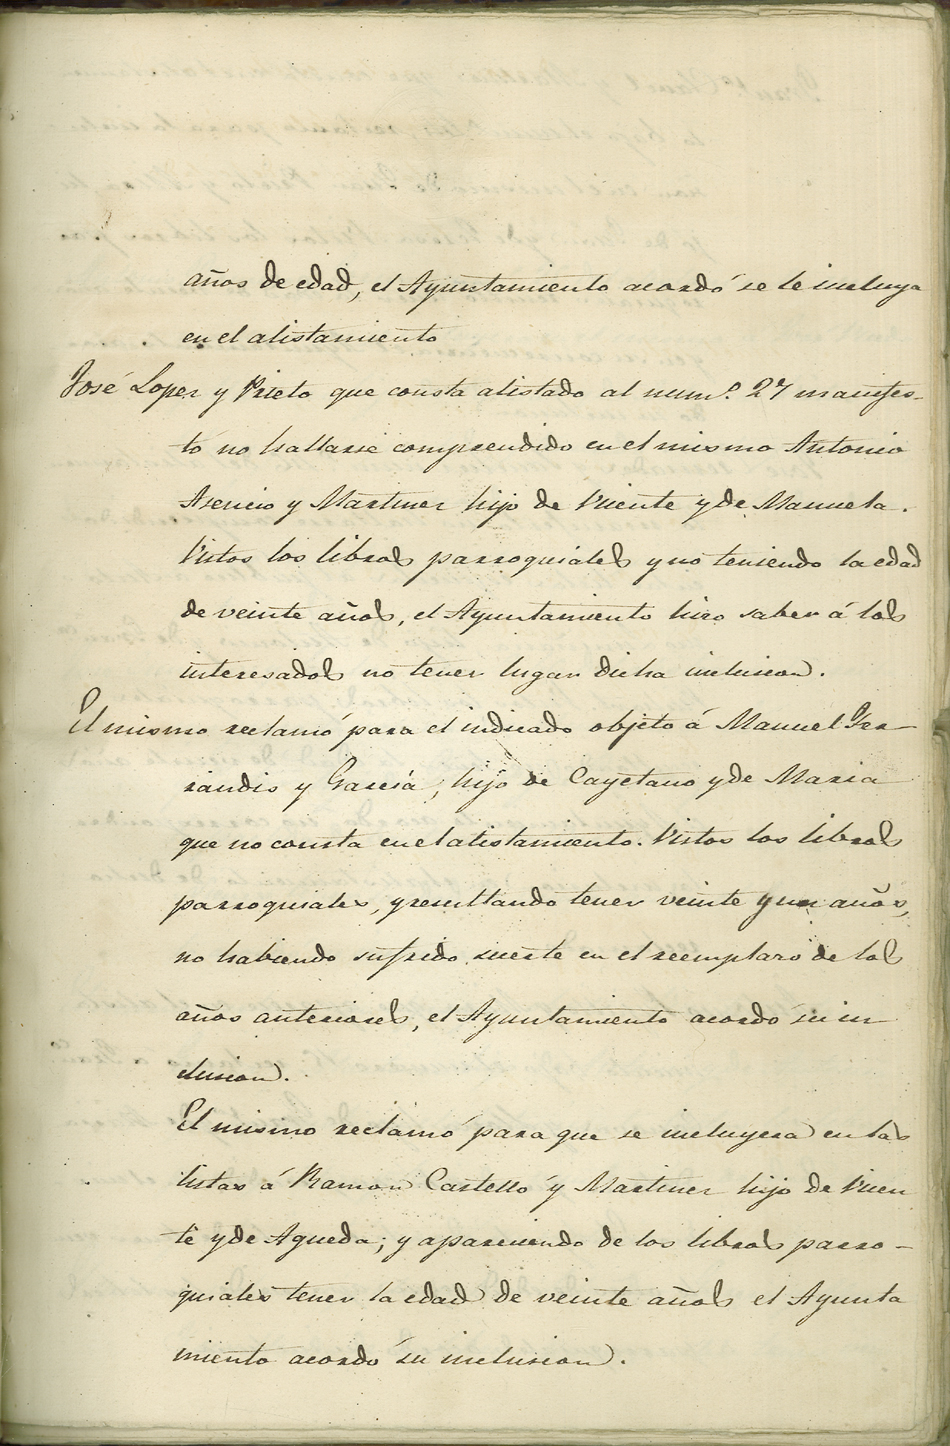 años de edad, el Ayuntamiento acordó se le incluya
en el alistamiento
José Lopez y Prieto que consta alistado al num.º 27 manifes-
tó no hallarse comprendido en el mismo Antonio
Asencio y Martinez hijo de Vicente y de Manuela.
Vistos los libros parroquiales y no teniendo la edad
de veinte años, el Ayuntamiento hizo saber á los
interesados no tener lugar dicha inclusion.
El mismo reclamó para el indicado objeto á Manuel Fer-
randis y Garcia, hijo de Cayetano y de Maria
que no consta en el alistamiento. Vistos los libros
parroquiales, y resultando tener veinte y un años,
no habiendo sufrido suerte en el reemplazo de los
años anteriores, el Ayuntamiento acordó su in-
clusion.
El mismo reclamó para que se incluyera en las
listas á Ramon Castelló y Martinez hijo de Vicen
te y de Agueda; y apareciendo de los libros parro-
quiales tener la edad de veinte años el Ayunta
miento acordó su inclusion.